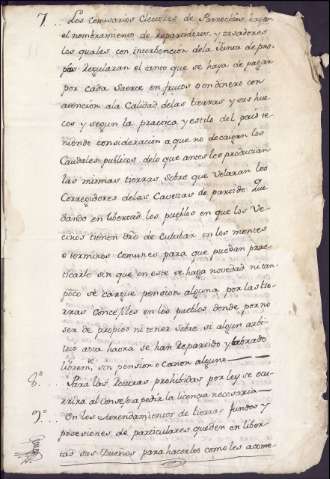 7. Los Comisarios Electores de Parroquias haran
el nombramiento de repartidores y tasadores
los quales con intervencion dela Junta de pro-
pios Regularan el tanto que se haya de pagar
por cada Suerte en frutos o en dinero con
atencion ala Calidad delas tierras y sus hue-
cos y segun la practica y estilo del pais te-
niendo consideracion a que no decaigan los
Caudales publicos delo que antes les producian
las mismas tierras sobre que velaran los
Corregidores delas Cavezas de partido Que
dando en libertad los pueblos en que los Ve-
cinos tienen dro de Cultibar en los montes
o terminos Comunes para que puedan prac-
ticarlo sin que en este se haga novedad ni tan-
poco se cargue pension alguna por las tie-
rras Concejiles en los pueblos donde por no
ser de propios ni tener sobre si algun arbi-
trio asta haora se han Repartido y labrado
libremte sin pension o Canon alguno
8.a Para las Roturas prohibidas por ley se ocu-
rrira al Consejo a pedir la licencia necesaria
9.a En los Arrendamientos de tierras fundos y
posesiones de particulares queden en liber-
tad sus Dueños para hacerlos como les acomo-